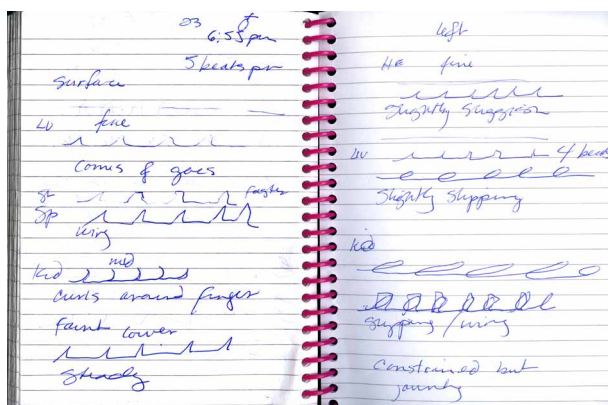 23 f
6:55 pm
5 beats pr
surface
LU fine
comes & goes
St faster
Sp
wiry
Kid mid
curls around finger
faint lower
steady
left
HE fine
slightly sluggish
LIV 4 beats
slightly slipping
Kid
slipping / wiry
Constrained but